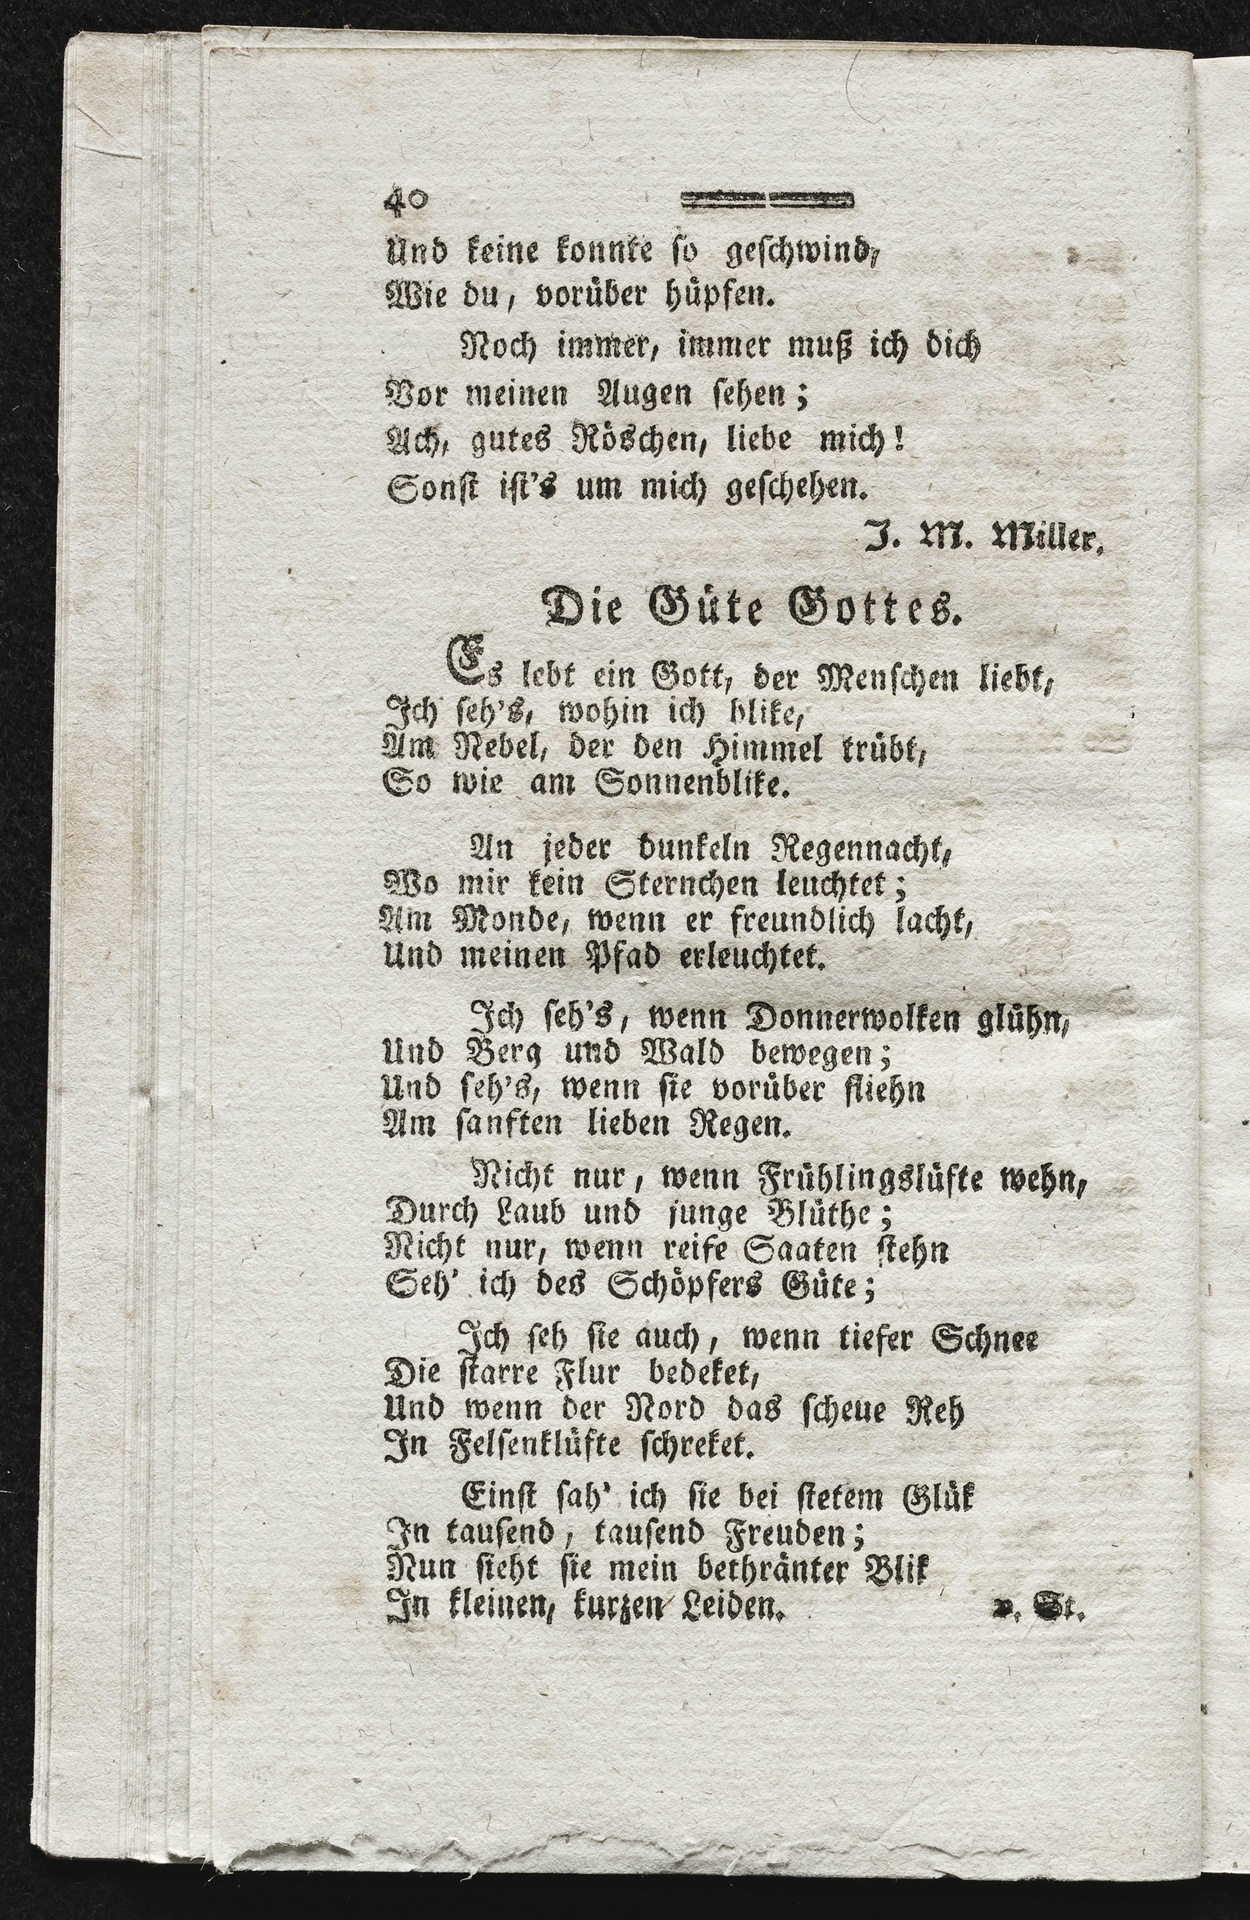 40
Und keine konnte ſo geſchwind,
Wie du, vorüber hüpfen.
Noch immer, immer muß ich dich
Vor meinen Augen ſehen;
Ach, gutes Röschen, liebe mich!
Sonſt iſt's um mich geſchehen.
J. M. Miller.
Die Güte Gottes.
Es lebt ein Gott, der Menſchen liebt,
Ich ſeh's, wohin ich blike,
Am Nebel, der den Himmel trübt,
So wie am Sonnenblike.
An jeder dunkeln Regennacht,
Wo mir kein Sternchen leuchtet;
Am Monde, wenn er freundlich lacht,
Und meinen Pfad erleuchtet.
Ich ſeh's, wenn Donnerwolken glühn,
Und Berg und Wald bewegen;
Und ſeh's, wenn ſie vorüber fliehn
Am ſanften lieben Regen.
Nicht nur, wenn Frühlingslüfte wehn,
Durch Laub und junge Blüthe;
Nicht nur, wenn reife Saaten ſtehn
Seh' ich des Schöpfers Güte;
Ich ſeh ſie auch, wenn tiefer Schnee
Die ſtarre Flur bedeket,
Und wenn der Nord das ſcheue Reh
In Felſenklüfte ſchreket.
Einſt ſah' ich ſie bei ſtetem Glük
In tauſend, tauſend Freuden;
Nun ſieht ſie mein bethränter Blik
In kleinen, kurzen Leiden. v. St.